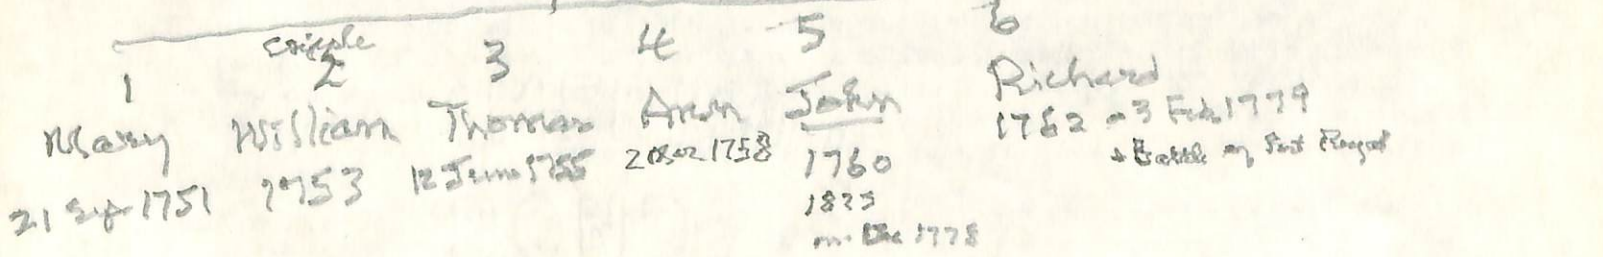 1 cripple 2 3 4 5 6
Mary William Thomas Ann John Richard
21 Sep 1751 1753 12 June 1755 1758 1760 1762 - 3 Feb 1779
Battle of Port Royal
1825
m. Dec 1778